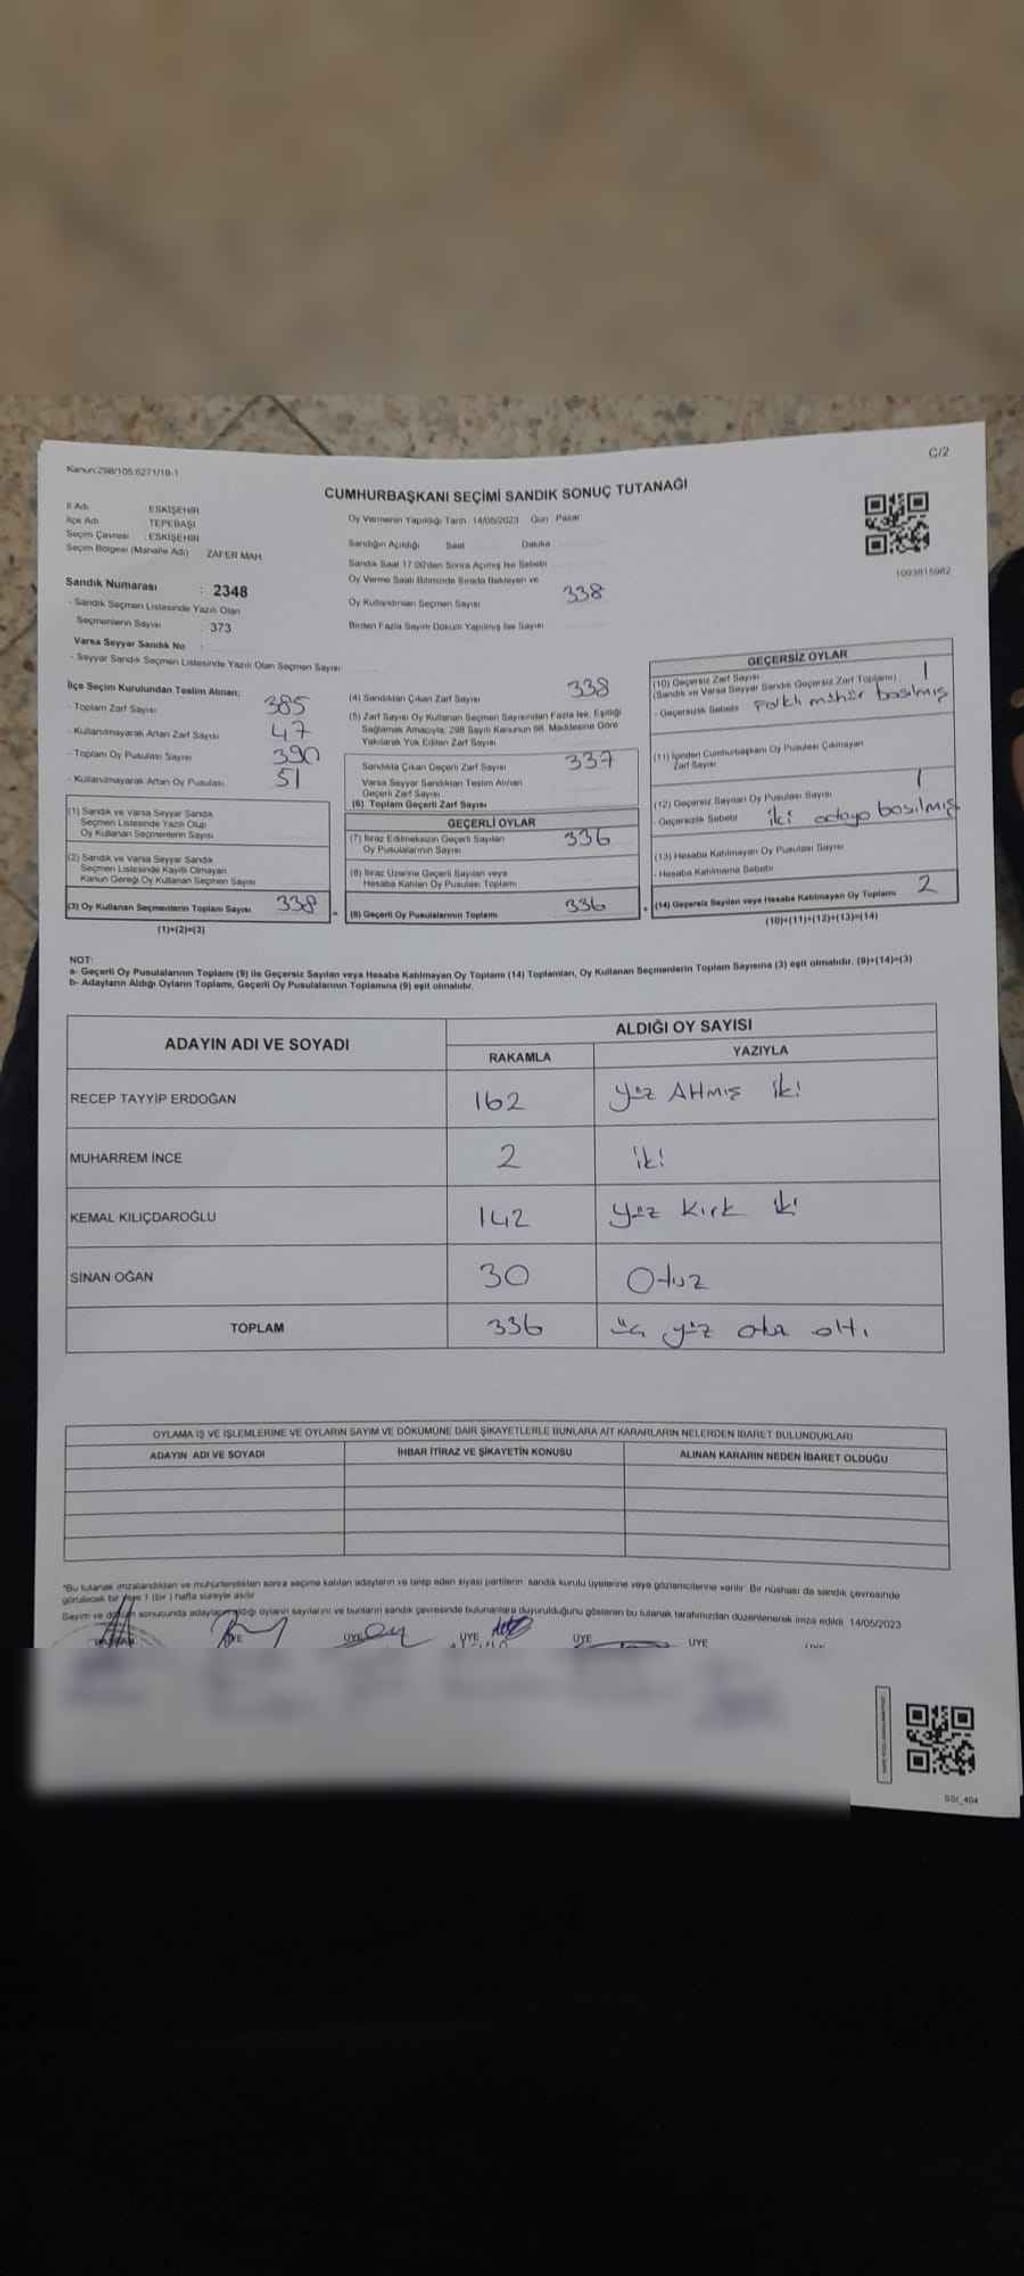 Kanun:298/105 6271/18-1
C/2
CUMHURBAŞKANI SEÇİMİ SANDIK SONUÇ TUTANAĞI
İl Adı ESKİŞEHİR
İlçe Adı TEPEBAŞI
Seçim Çevresi : ESKİŞEHİR
Seçim Bölgesi (Mahalle Adı) ZAFER MAH.
Sandık Numarası : 2348
- Sandık Seçmen Listesinde Yazılı Olan
Seçmenlerin Sayısı 373
Varsa Seyyar Sandık No
- Seyyar Sandık Seçmen Listesinde Yazılı Olan Seçmen Sayısı
Oy Vermenin Yapıldığı Tarih 14/05/2023 Gün Pazar
Sandığın Açıldığı Saat Dakika
Sandık Saat 17.00'den Sonra Açılmış İse Sebebi
Oy Verme Saati Bitiminde Sırada Bekleyen ve
Oy Kullandırılan Seçmen Sayısı 338
Birden Fazla Sayım Döküm Yapılmış İse Sayısı
1003815982
İlçe Seçim Kurulundan Teslim Alınan;
- Toplam Zarf Sayısı 385
- Kullanılmayarak Artan Zarf Sayısı 47
- Toplam Oy Pusulası Sayısı 390
- Kullanılmayarak Artan Oy Pusulası 51
(1) Sandık ve Varsa Seyyar Sandık
Seçmen Listesinde Yazılı Olup
Oy Kullanan Seçmenlerin Sayısı
(2) Sandık ve Varsa Seyyar Sandık
Seçmen Listesinde Kayıtlı Olmayan
Kanun Gereği Oy Kullanan Seçmen Sayısı
(3) Oy Kullanan Seçmenlerin Toplam Sayısı 338
(1)+(2)=(3)
(4) Sandıktan Çıkan Zarf Sayısı 338
(5) Zarf Sayısı Oy Kullanan Seçmen Sayısından Fazla İse, Eşitliği
Sağlamak Amacıyla; 298 Sayılı Kanunun 98. Maddesine Göre
Yakılarak Yok Edilen Zarf Sayısı
Sandıkta Çıkan Geçerli Zarf Sayısı 337
Varsa Seyyar Sandıktan Teslim Alınan
Geçerli Zarf Sayısı
(6) Toplam Geçerli Zarf Sayısı
GEÇERLİ OYLAR
(7) İtiraz Edilmeksizin Geçerli Sayılan 336
Oy Pusulalarının Sayısı
(8) İtiraz Üzerine Geçerli Sayılan veya
Hesaba Katılan Oy Pusulası Toplamı
(9) Geçerli Oy Pusulalarının Toplamı 336
GEÇERSİZ OYLAR
(10) Geçersiz Zarf Sayısı 1
(Sandık ve Varsa Seyyar Sandık Geçersiz Zarf Toplamı)
- Geçersizlik Sebebi Farklı mühür basılmış
(11) İçinden Cumhurbaşkanı Oy Pusulası Çıkmayan
Zarf Sayısı
(12) Geçersiz Sayılan Oy Pusulası Sayısı 1
- Geçersizlik Sebebi iki adaya basılmış
(13) Hesaba Katılmayan Oy Pusulası Sayısı
- Hesaba Katılmama Sebebi
(14) Geçersiz Sayılan veya Hesaba Katılmayan Oy Toplamı 2
(10)+(11)+(12)+(13)=(14)
NOT:
a- Geçerli Oy Pusulalarının Toplamı (9) ile Geçersiz Sayılan veya Hesaba Katılmayan Oy Toplamı (14) Toplamları, Oy Kullanan Seçmenlerin Toplam Sayısına (3) eşit olmalıdır. (9)+(14)=(3)
b- Adayların Aldığı Oyların Toplamı, Geçerli Oy Pusulalarının Toplamına (9) eşit olmalıdır.
ADAYIN ADI VE SOYADI
ALDIĞI OY SAYISI
RAKAMLA YAZIYLA
RECEP TAYYİP ERDOĞAN 162 yüz Altmış iki
MUHARREM İNCE 2 iki
KEMAL KILIÇDAROĞLU 142 yüz kırk iki
SİNAN OĞAN 30 Otuz
TOPLAM 336 üç yüz otuz altı
OYLAMA İŞ VE İŞLEMLERİNE VE OYLARIN SAYIM VE DÖKÜMÜNE DAİR ŞİKAYETLERLE BUNLARA AİT KARARLARIN NELERDEN İBARET BULUNDUKLARI
ADAYIN ADI VE SOYADI İHBAR İTİRAZ VE ŞİKAYETİN KONUSU ALINAN KARARIN NEDEN İBARET OLDUĞU
*Bu tutanak imzalandıktan ve mühürlendikten sonra seçime katılan adayların ve talep eden siyasi partilerin sandık kurulu üyelerine veya gözlemcilerine verilir. Bir nüshası da sandık çevresinde
görülecek bir yere 1 (bir) hafta süreyle asılır.
Sayım ve döküm sonucunda adayların aldığı oyların sayılarını ve bunların sandık çevresinde bulunanlara duyurulduğunu gösteren bu tutanak tarafımızdan düzenlenerek imza edildi. 14/05/2023
ÜYE ÜYE ÜYE ÜYE ÜYE
SSI_404